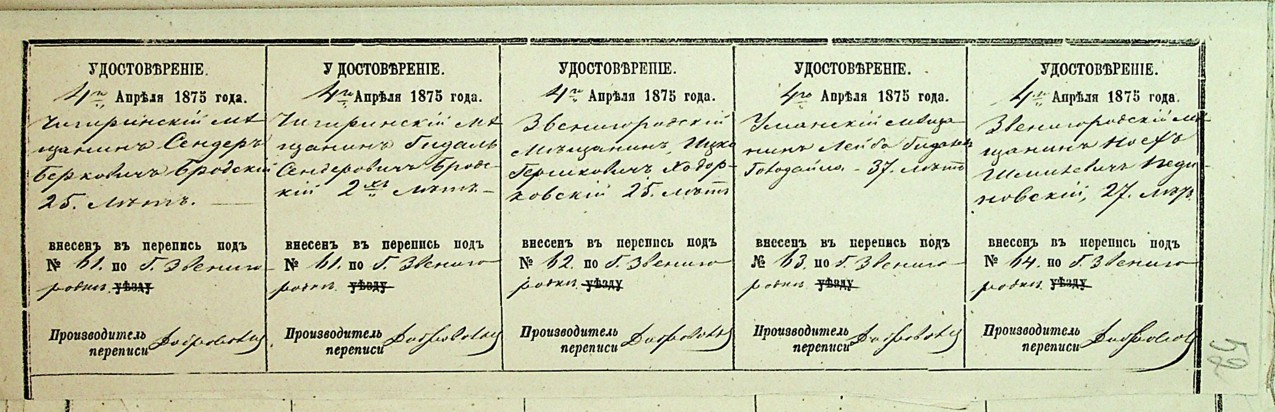 УДОСТОВѢРЕНІЕ.
4го Апрѣля 1875 года.
Чигиринскій мѣ
щанинъ Сендеръ
Берковичъ Бродскій
25. лѣтъ.
внесенъ въ перепись подъ
№ 61. по г. Звениго
родкѣ уѣзду
Производитель
переписи
УДОСТОВѢРЕНІЕ.
4го Апрѣля 1875 года.
Чигиринскій мѣ
щанинъ Гидаль
Сендеровичъ Брод
скій 2хъ лѣтъ
внесенъ въ перепись подъ
№ 61. по г. Звениго
родкѣ уѣзду
Производитель
переписи
УДОСТОВѢРЕНІЕ.
4го Апрѣля 1875 года.
Звенигородскій
мѣщанинъ, Ицко
Гершковичъ Ходор
ковскій 25. лѣтъ
внесенъ въ перепись подъ
№ 62. по г. Звениго
родкѣ уѣзду
Производитель
переписи
УДОСТОВѢРЕНІЕ.
4го Апрѣля 1875 года.
Уманскій мѣща
нинъ Лейба
37. лѣтъ
внесенъ въ перепись подъ
№ 63. по г. Звениго
родкѣ уѣзду
Производитель
переписи
УДОСТОВѢРЕНІЕ.
4го Апрѣля 1875 года.
Звенигородскій мѣ
щанинъ Іосъ
27. лѣтъ
внесенъ въ перепись подъ
№ 64. по г. Звениго
родкѣ уѣзду
Производитель
переписи
52